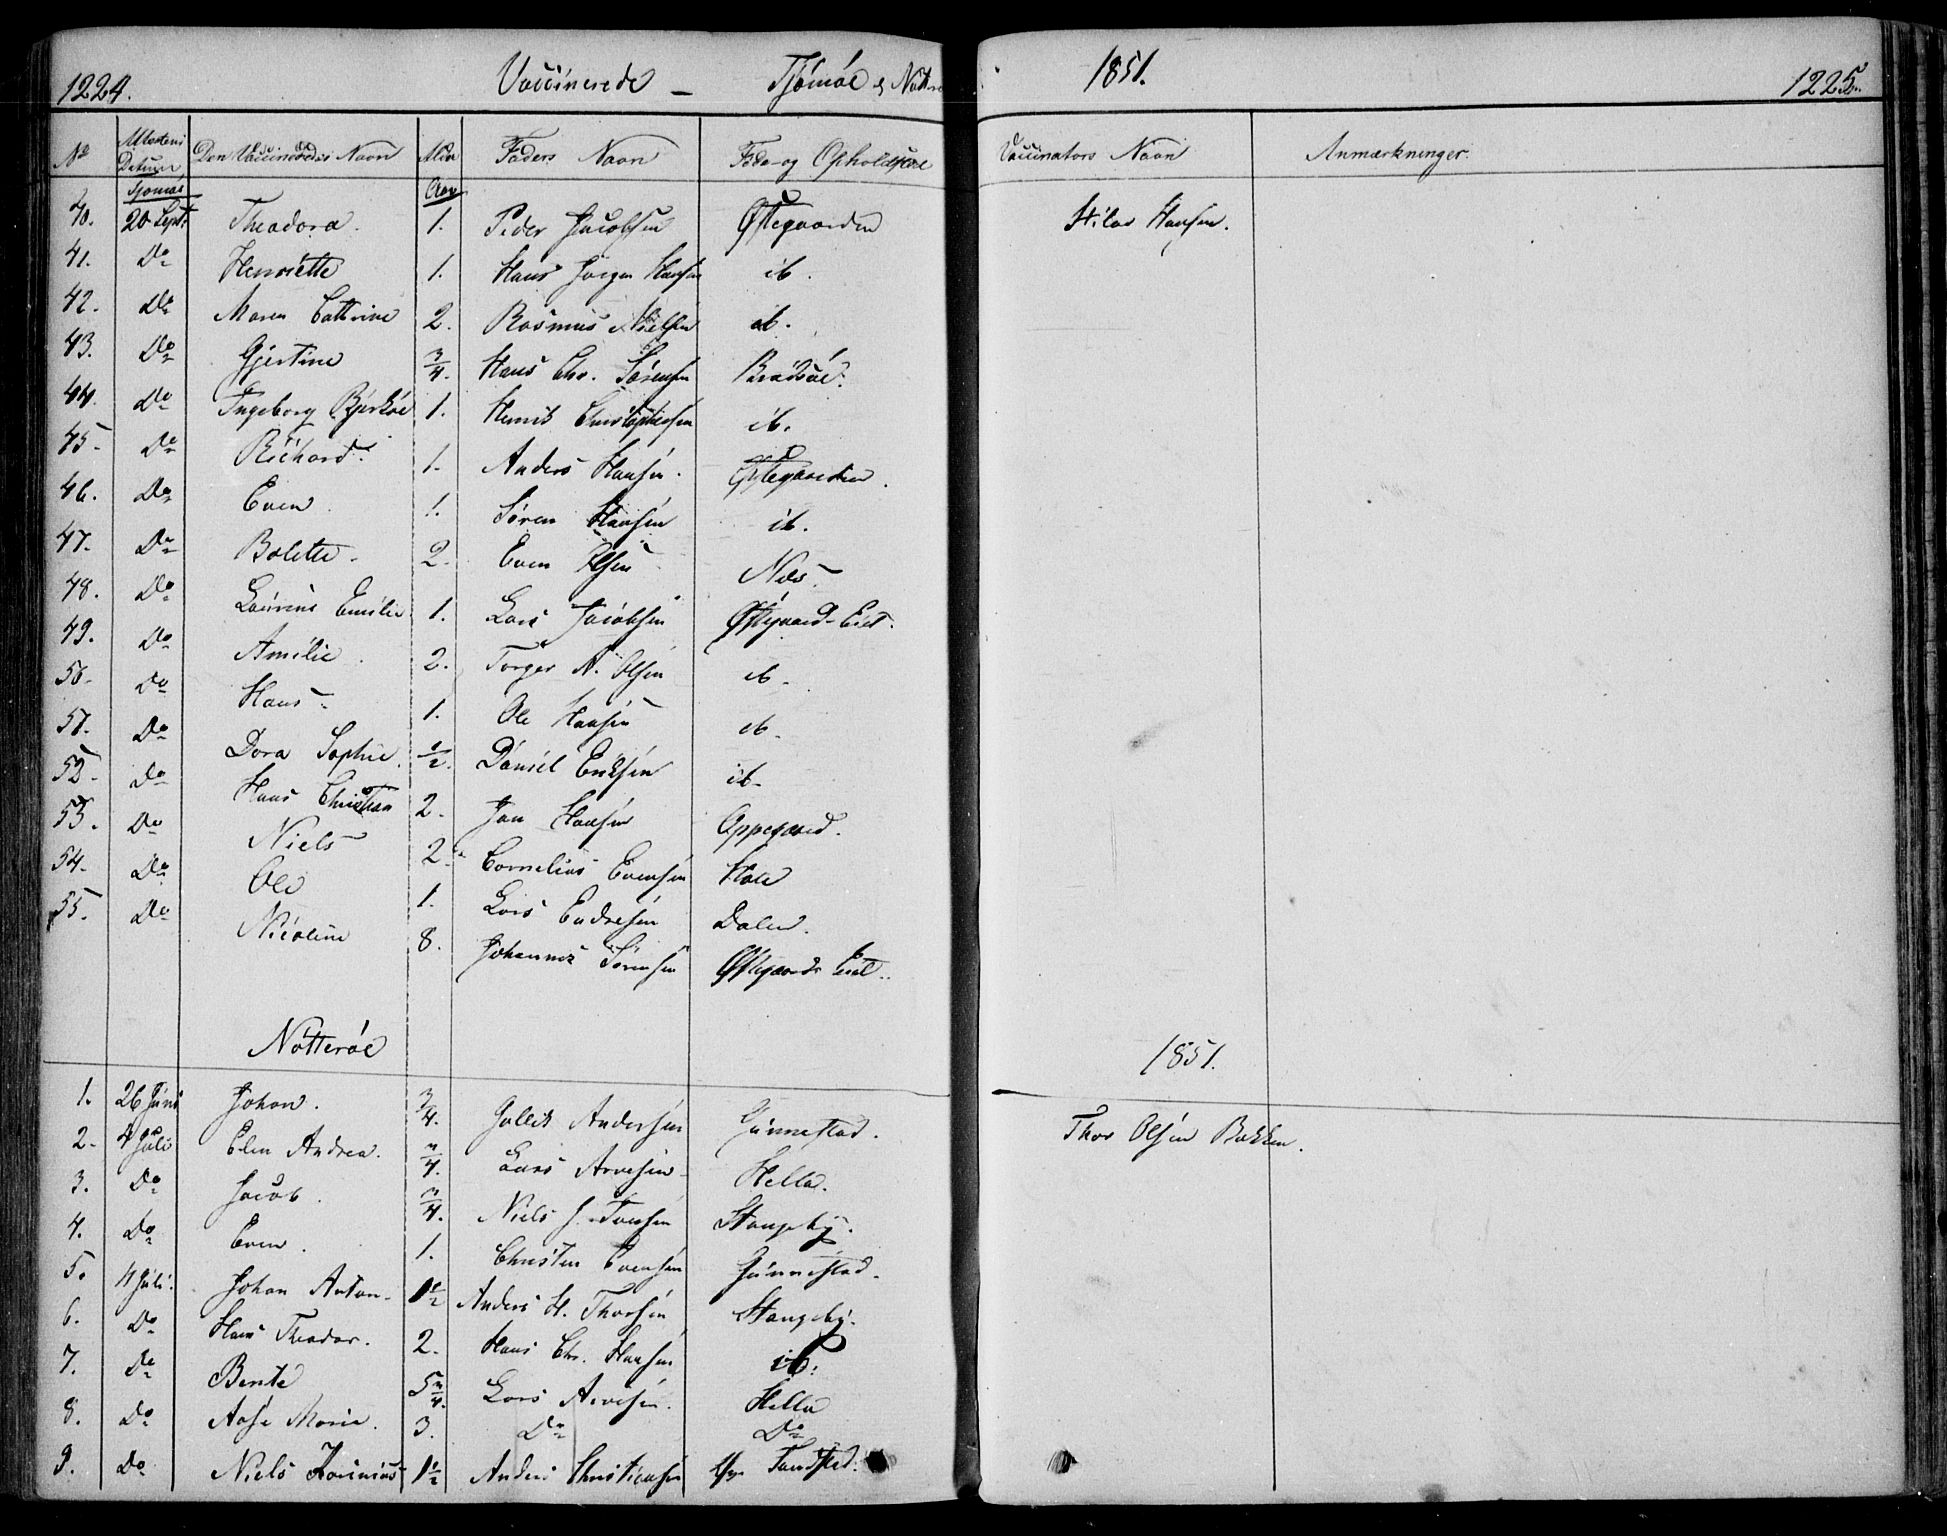 1224. Vaccinerede – Tjømöe & Nøtte 1851. 1225.
No Attestens Datum Den Vaccineredes Navn Alder Faders Navn Føde- og Opholdsted Vaccinators Navn Anmærkninger.
Tjømöe Aar
40. 20 Septr Theodora. 1. Peder Jacobsen Østegaarden Hilar Hansen.
41. Do Henriette 1. Hans Jørgen Hansen ib.
42. Do Maren Cathrine 2. Rasmus Nielsen ib.
43. Do Gjertine 3/4. Hans Chr. Sørensen
44. Do Ingeborg 1. Henrik Christophersen ib.
45. Do Richard. 1. Anders Hansen. Østegaarden.
46. Do Even 1. Søren Hansen ib.
47. Do Bolette. 2. Even Olsen Næs.
48. Do Emilie 1. Lars Jacobsen Østegaard-Eiet.
49. Do Amilie. 2. Torger A. Olsen ib.
50. Do Hans. 1. Ole Hansen ib.
51. Do Dora Sophie. 1/2. Daniel Eriksen ib.
52. Do Hans Christian 2. Jan Hansen Oppegaard.
53. Do Niels 2. Cornelius Evensen Hole
54. Do Ole 1. Lars Endresen Dalen.
55. Do Nicoline 8. Johannes Sørensen Østegaards Eiet.
Nötteröe 1851.
1. 26 Juni Johan. 3/4. Gullik Andersen Gunnestad. Thor Olsen Bakken.
2. 4 Juli Elen Andrea. 3/4. Lars Arvesen Hella.
3. Do Jacob. 3/4. Niels J. Stangeby.
4. Do Even. 1. Christen Evensen Gunnestad.
5. 4 Juli. Johan Anton. 1 1/2 Anders H. Thorsen Stangeby.
6. Do Hans Theodor. 2. Hans Chr. Hansen ib.
7. Do Bente 5 3/4. Lars Arvesen. Hella
8. Do Aase Marie. 3. Do Do
9. Do Niels 1 1/2 Anders Christiansen